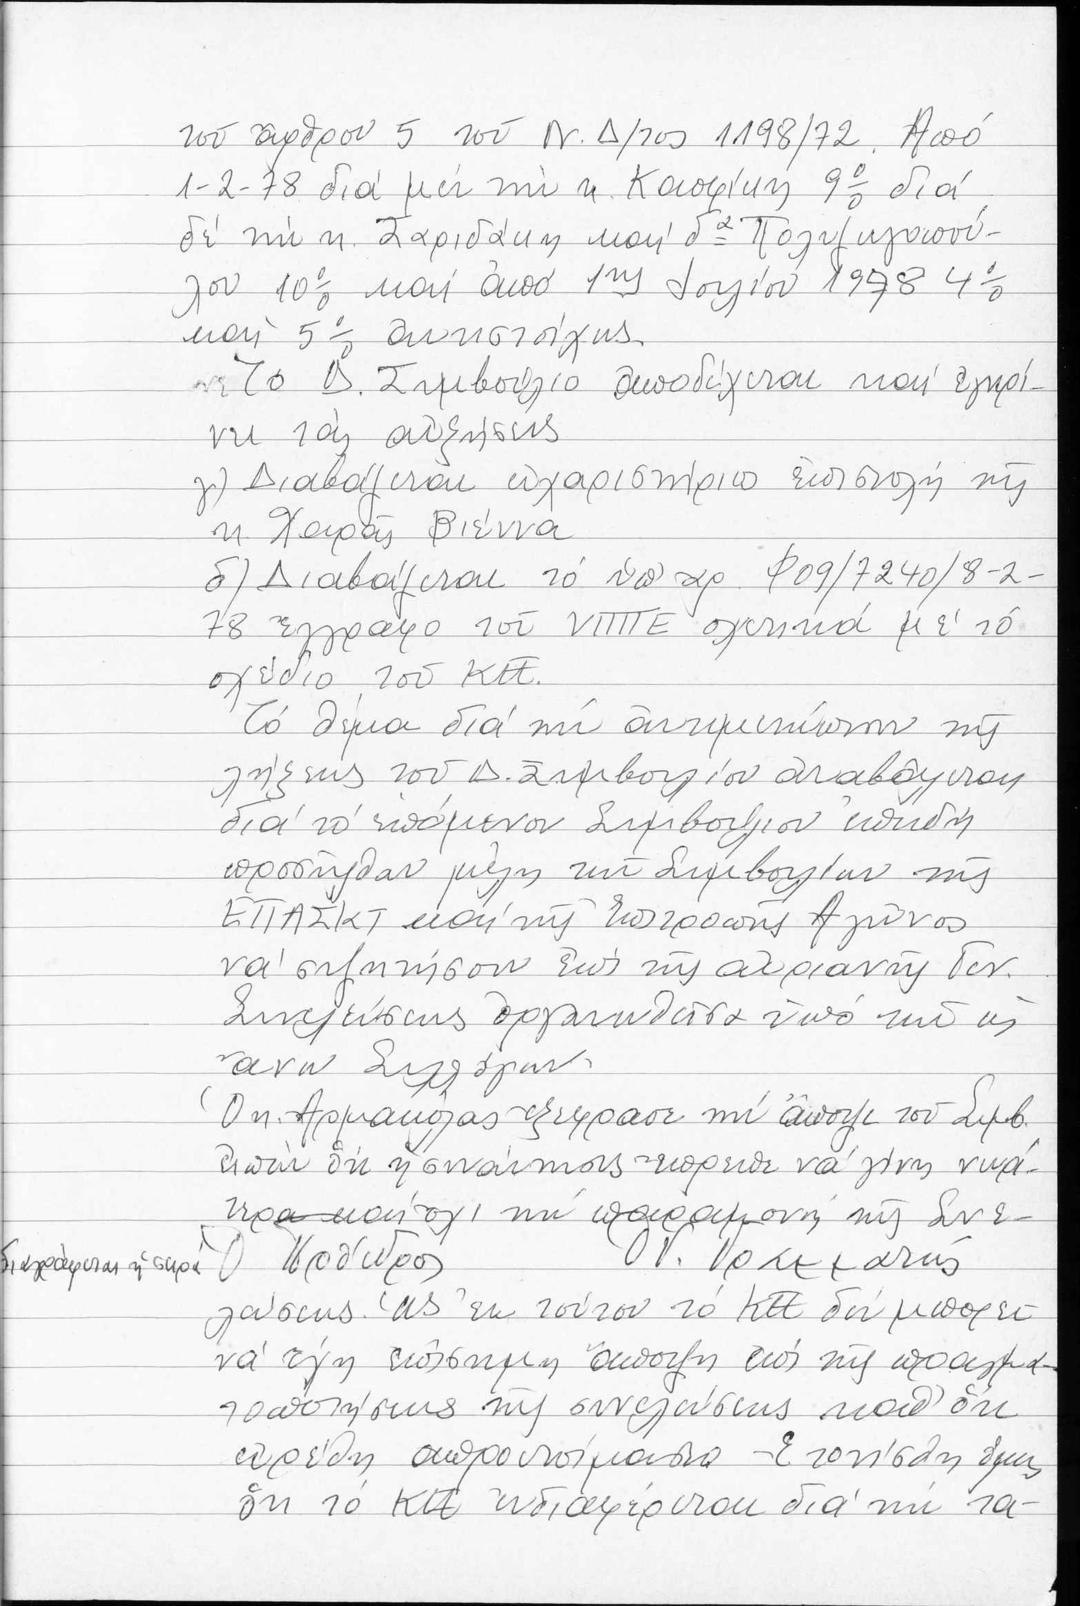 τοῦ ἄρθρου 5 τοῦ Ν.Δ/τος 1198/72. Ἀπό
1-2-78 διά μέν τήν κ. Κασφίκη 9% διά
δέ τήν κ. Σαριδάκη καί δα Πολυζωγοπού-
λου 10% καί ἀπό 1ης Ἰουλίου 1978 4%
καί 5% ἀντιστοίχως.
Τό Δ. Συμβούλιο ἀποδέχεται καί ἐγκρί-
νει τάς αὐξήσεις
γ) Διαβάζεται εὐχαριστήριο ἐπιστολή τῆς
κ. Χαρᾶς Βιέννα
δ) Διαβάζεται τό ὑπ' ἀρ. Φ09/7240/8-2-
78 ἔγγραφο τοῦ ΥΠΠΕ σχετικά μέ τό
σχέδιο τοῦ ΚΠ.
Τό θέμα διά τήν ἀντιμετώπισιν τῆς
λήξεως τοῦ Δ. Συμβουλίου ἀναβάλεται
διά τό ἑπόμενον Συμβούλιον ἐπειδή
προσῆλθαν μέλη τῶν Συμβουλίων τῆς
ΕΠΑΣΚΤ καί τῆς Ἐπιτροπῆς Ἀγῶνος
νά συζητήσουν ἐπί τῆς αὐριανῆς Γεν.
Συνελεύσεως ὀργανωθεῖσα ὑπό τῶν ὡς
ἄνω Συλλόγων.
Ὁ κ. Αρμακόλας ἐξέφρασε τήν ἄποψι τοῦ Συμβ.
εἰπών ὅτι ἡ συνάντησις ἔπρεπε νά γίνη νωρί-
τερα καί ὄχι τήν παραμονή τῆς Συνε-
διαγράφεται ἡ σειρά Ὁ Πρόεδρος Ὁ Γ. Γραμματεύς
λεύσεως. Ὡς ἐκ τούτου τό ΚΠ δέν μπορεῖ
νά ἔχη ἐπίσημη ἄποψη ἐπί τῆς πραγμα-
τοποιήσεως τῆς συνελεύσεως καθ' ὅτι
εὑρέθη ἀπροετοίμαστο - Ἐτονίσθη ὅμως
ὅτι τό ΚΠ ἐνδιαφέρεται διά τήν τα-